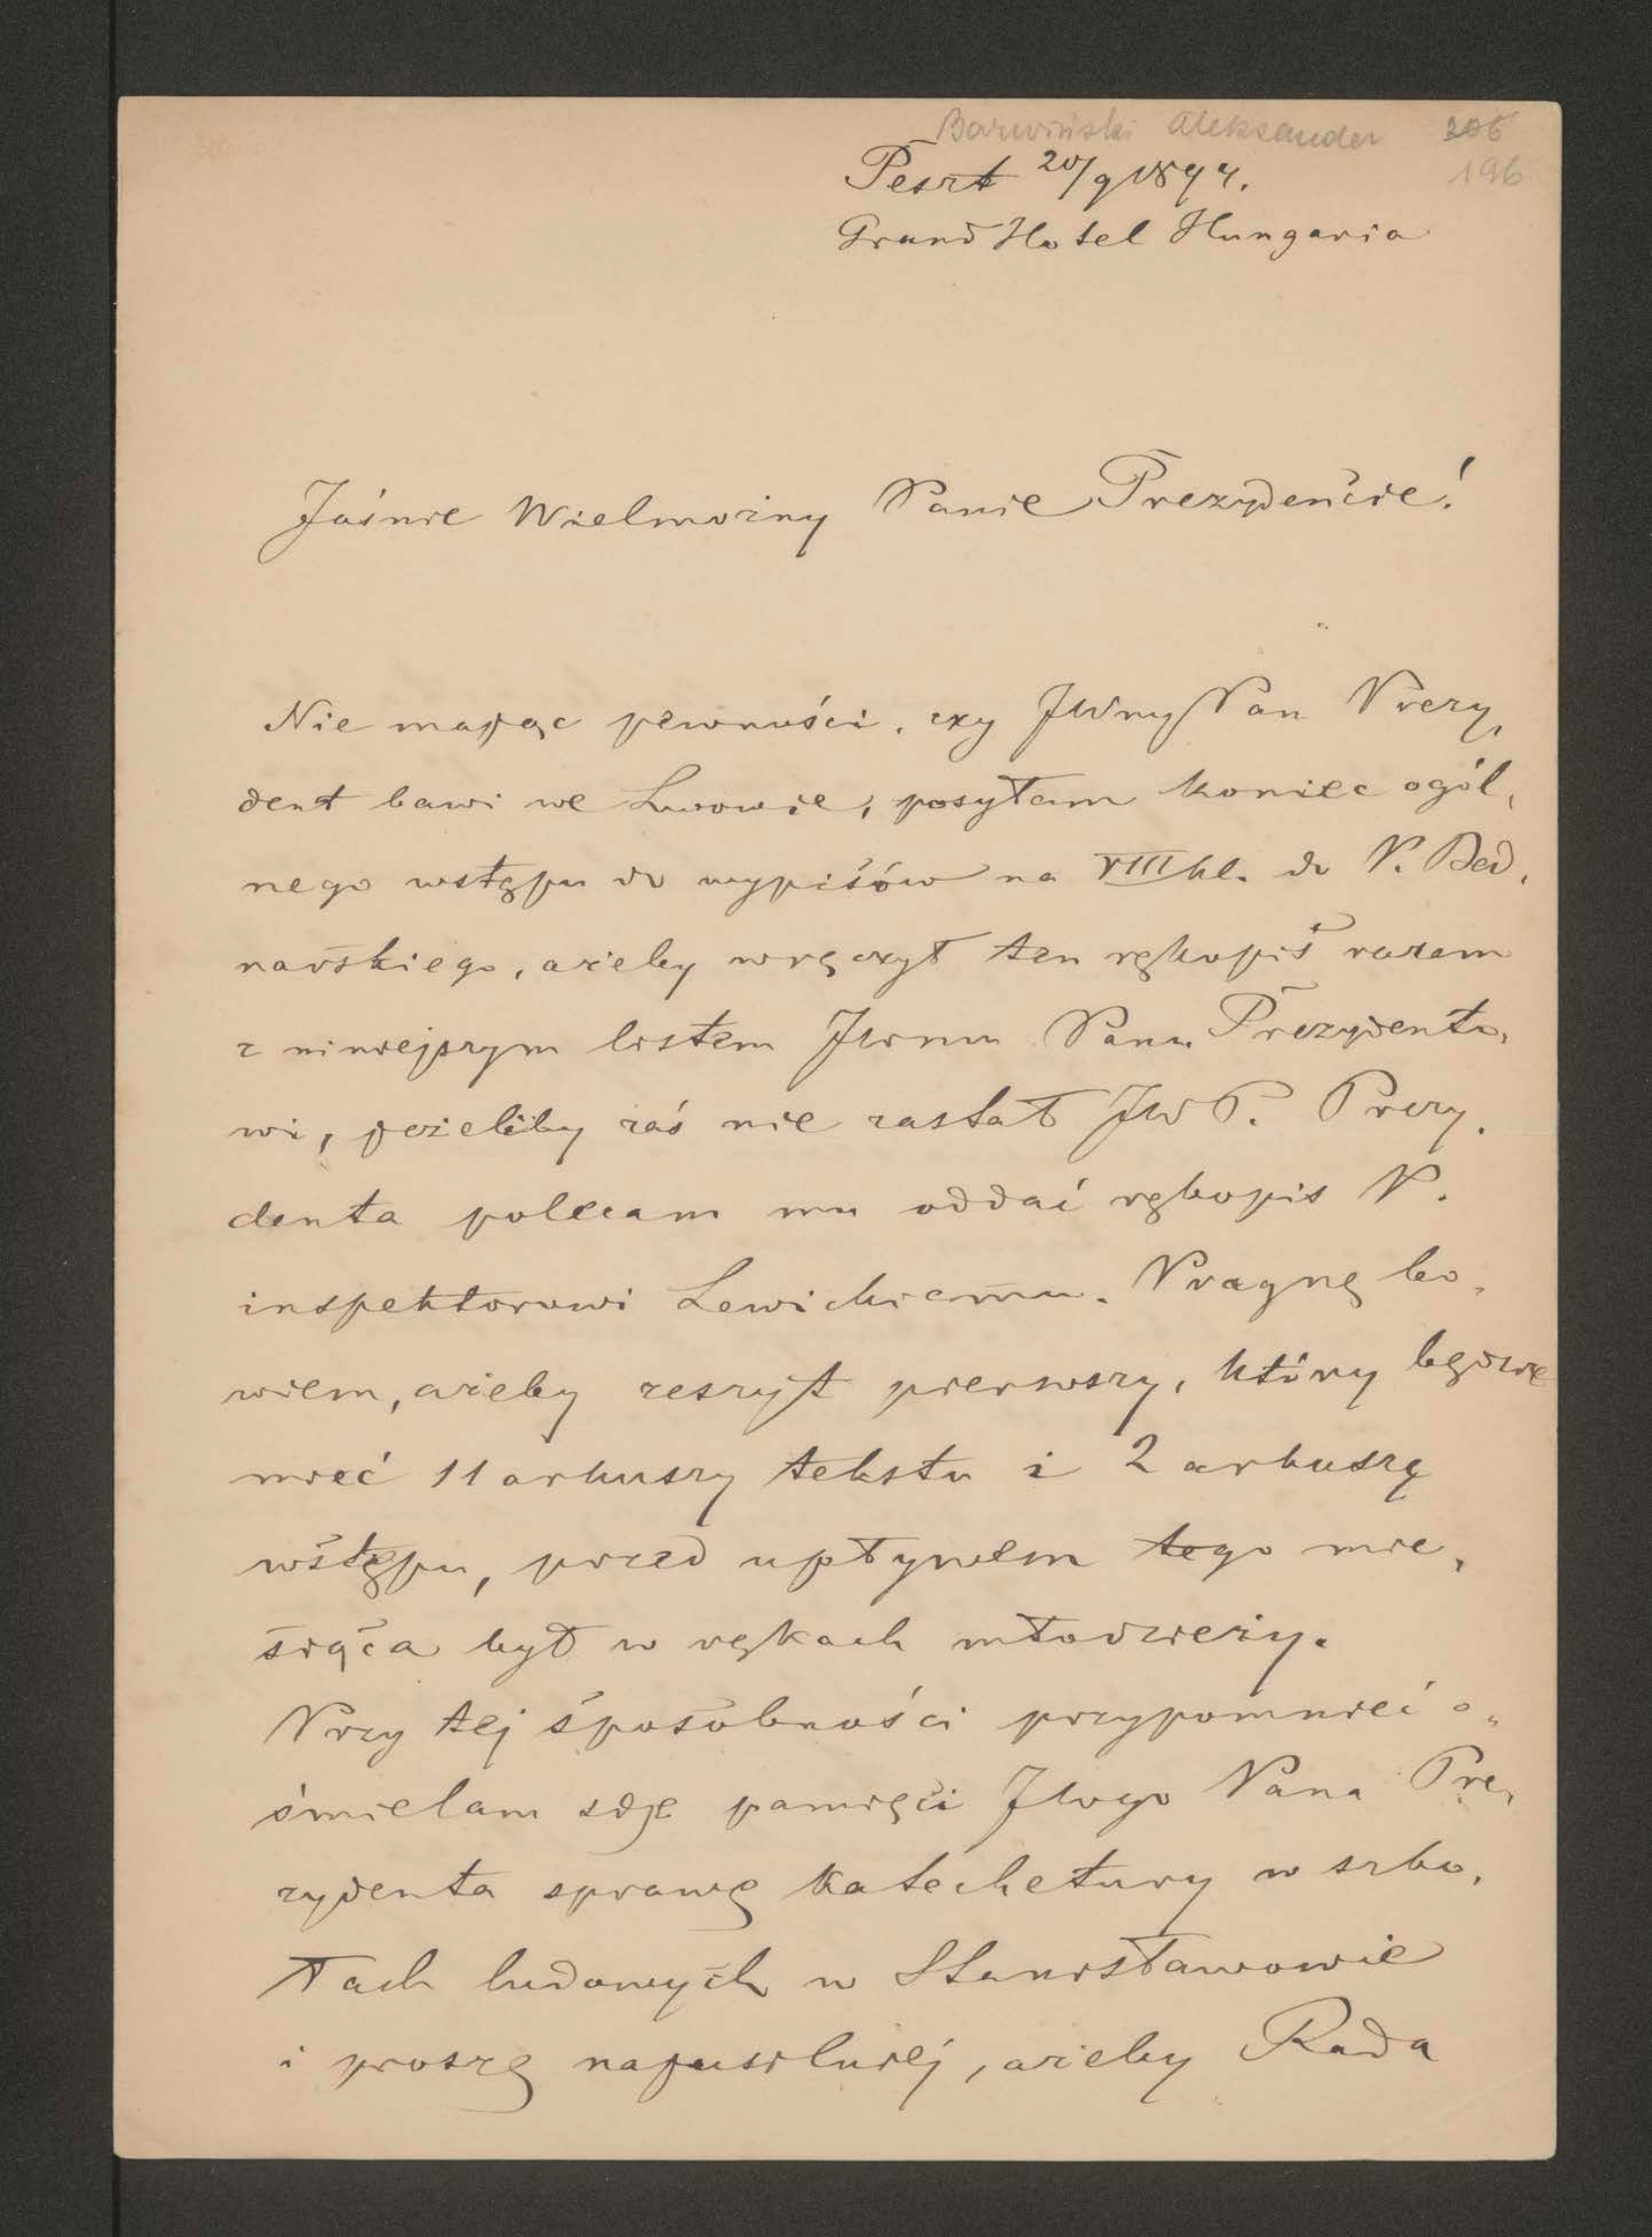 Barwiński Aleksander 206
196
Peszt 20/9 1894.
Grand Hotel Hungaria
Jaśnie Wielmożny Panie Prezydencie!
Nie mając pewności, czy JWny Pan Prezy,
dent bawi we Lwowie, posyłam koniec ogól,
nego wstępu do wypisów na VIII kl. do P. Bed,
narskiego, ażeby wręczył ten rękopis razem
z niniejszym listem JWmu Panu Prezydento,
wi, jeżeliby zaś nie zastał JWP. Prezy,
denta polecam mu oddać rękopis P.
inspektorowi Lewickiemu. Pragnę bo,
wiem, ażeby zeszyt pierwszy, który będzie
mieć 11 arkuszy tekstu i 2 arkusze
wstępu, przed upływem tego mie,
siąca był w rękach młodzieży.
Przy tej sposobności przypomnieć o„
śmielam się pamięci JWgo Pana Pre,
zydenta sprawę katechetury w szko,
łach ludowych w Stanisławowie
i proszę najusilniej, ażeby Rada